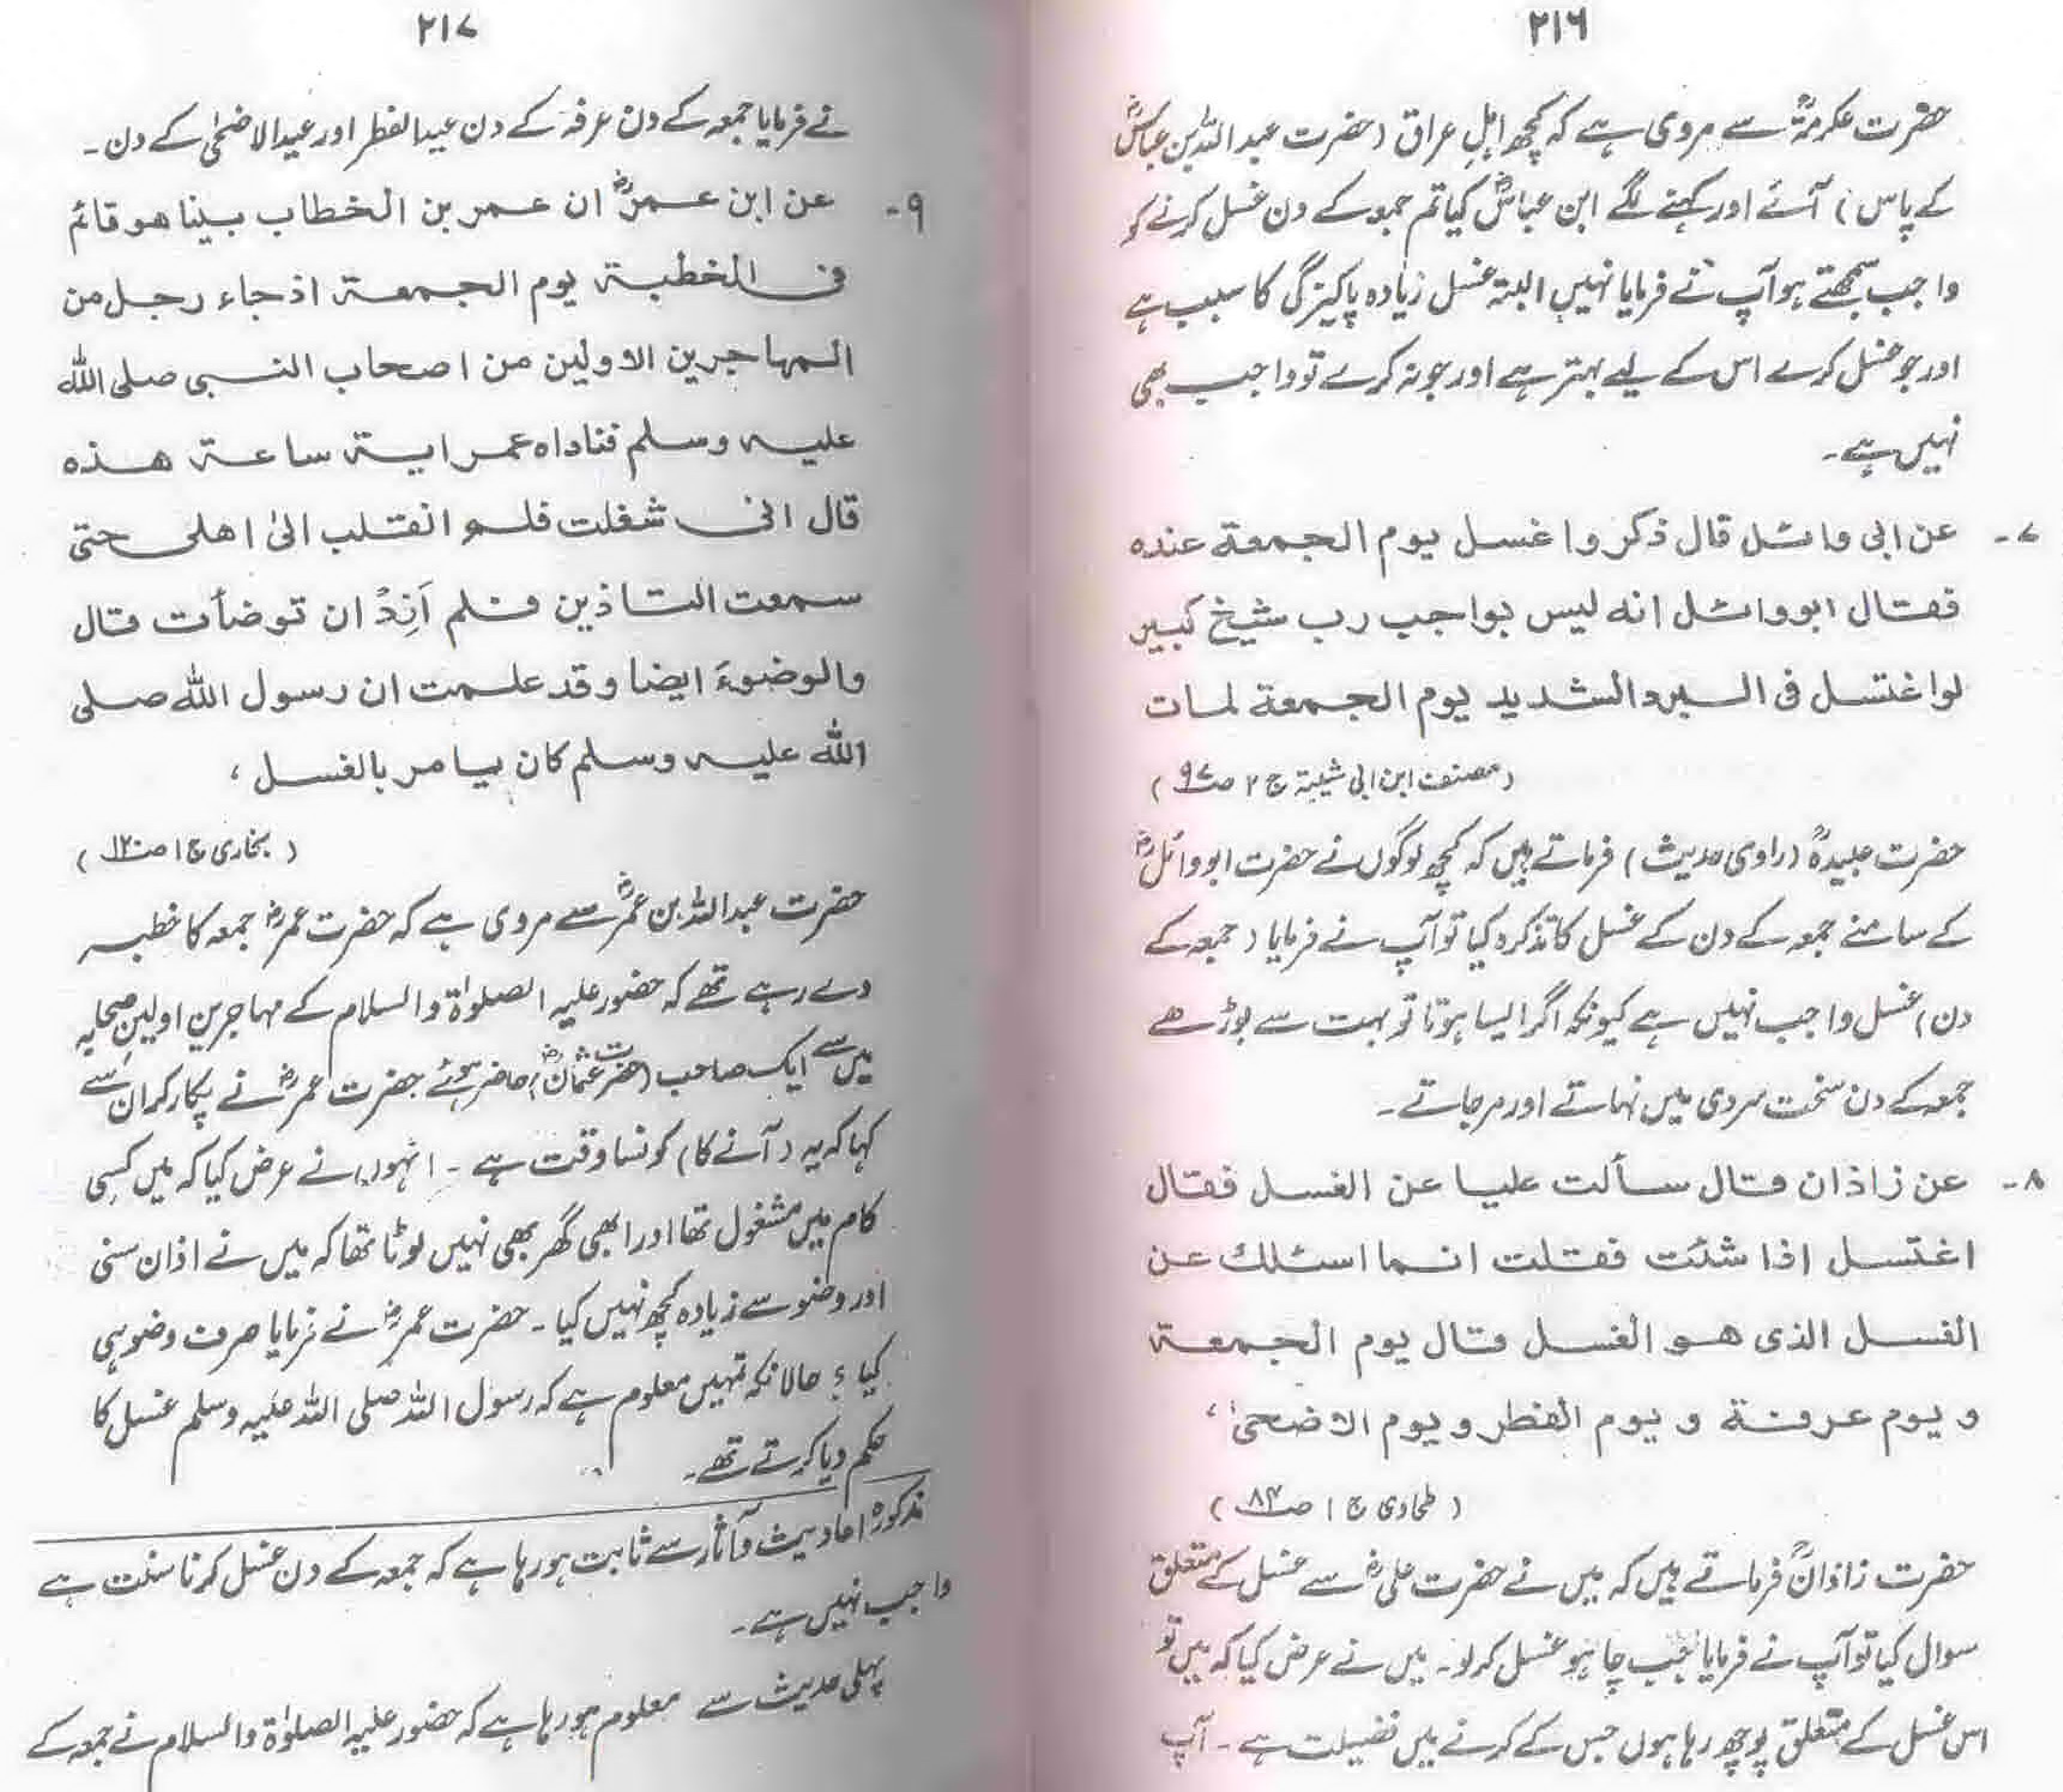 ۲۱۶
حضرت عکرمہؒ سے مروی ہے کہ کچھ اہلِ عراق (حضرت عبد اللہ بن عباسؓ
کے پاس) آئے اور کہنے لگے ابن عباسؓ کیا تم جمعہ کے دن غسل کرنے کو
واجب سمجھتے ہو آپ نے فرمایا نہیں البتہ غسل زیادہ پاکیزگی کا سبب ہے
اور جو غسل کرے اس کے لیے بہتر ہے اور جو نہ کرے تو واجب بھی
نہیں ہے۔
۷۔ عن ابی وائل قال ذکروا غسل یوم الجمعة عندہ
فقال ابو وائل انه لیس بواجب رب شیخ کبیر
لو اغتسل فی البرد الشدید یوم الجمعة لمات
(مصنف ابن ابی شیبة ج ۲ ص ۹۷)
حضرت عبیدہؒ (راوی حدیث) فرماتے ہیں کہ کچھ لوگوں نے حضرت ابو وائلؓ
کے سامنے جمعہ کے دن کے غسل کا تذکرہ کیا تو آپ نے فرمایا (جمعہ کے
دن) غسل واجب نہیں ہے کیونکہ اگر ایسا ہوتا تو بہت سے بوڑھے
جمعہ کے دن سخت سردی میں نہاتے اور مر جاتے۔
۸۔ عن زاذان قال سألت علیا عن الغسل فقال
اغتسل اذا شئت فقلت انما اسئلك عن
الغسل الذی هو الغسل قال یوم الجمعة
و یوم عرفة و یوم الفطر و یوم الاضحیٰ،
(طحاوی ج ۱ ص ۸۴)
حضرت زاذانؒ فرماتے ہیں کہ میں نے حضرت علیؓ سے غسل کے متعلق
سوال کیا تو آپ نے فرمایا جب چاہو غسل کر لو۔ میں نے عرض کیا کہ میں تو
اس غسل کے متعلق پوچھ رہا ہوں جس کے کرنے میں فضیلت ہے۔ آپ
۲۱۷
نے فرمایا جمعہ کے دن عرفہ کے دن عیدالفطر اور عیدالاضحیٰ کے دن۔
۹۔ عن ابن عمرؓ ان عمر بن الخطاب بینا هو قائم
فی الخطبة یوم الجمعة اذ جاء رجل من
المهاجرین الاولین من اصحاب النبی صلی اللہ
علیه وسلم فناداہ عمر ایة ساعة هذہ
قال انی شغلت فلم انقلب الیٰ اهلی حتی
سمعت التاذین فلم اَزِدْ ان توضأت قال
والوضوءَ ایضا وقد علمت ان رسول اللہ صلی
اللہ علیه وسلم کان یامر بالغسل،
(بخاری ج ۱ ص ۱۲۰)
حضرت عبداللہ بن عمرؓ سے مروی ہے کہ حضرت عمرؓ جمعہ کا خطبہ
دے رہے تھے کہ حضور علیہ الصلوٰۃ والسلام کے مہاجرین اولین صحابہ
میں سے ایک صاحب (حضرت عثمانؓ) حاضر ہوئے حضرت عمرؓ نے پکار کر ان سے
کہا کہ یہ (آنے کا) کونسا وقت ہے۔ انہوں نے عرض کیا کہ میں کسی
کام میں مشغول تھا اور ابھی گھر بھی نہیں لوٹا تھا کہ میں نے اذان سنی
اور وضو سے زیادہ کچھ نہیں کیا۔ حضرت عمرؓ نے فرمایا صرف وضو ہی
کیا؟ حالانکہ تمہیں معلوم ہے کہ رسول اللہ صلی اللہ علیہ وسلم غسل کا
حکم دیا کرتے تھے۔
مذکورہ احادیث و آثار سے ثابت ہو رہا ہے کہ جمعہ کے دن غسل کرنا سنت ہے
واجب نہیں ہے۔
پہلی حدیث سے معلوم ہو رہا ہے کہ حضور علیہ الصلوٰۃ والسلام نے جمعہ کے